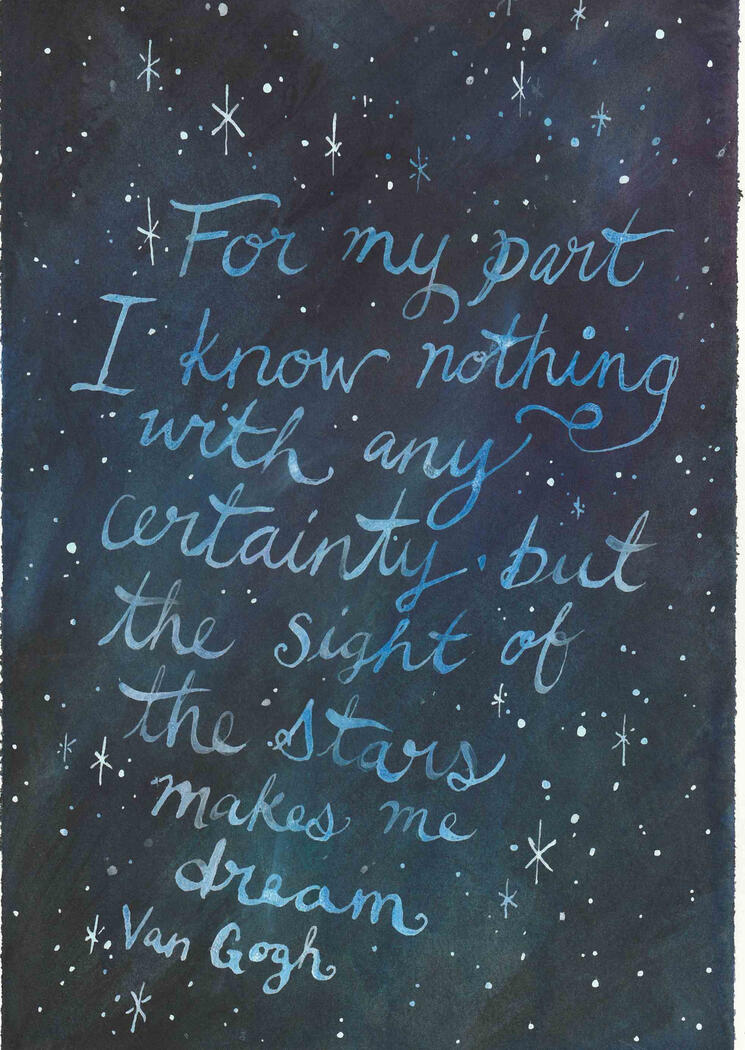 For my part
I know nothing
with any
certainty, but
the sight of
the stars
makes me
dream
Van Gogh